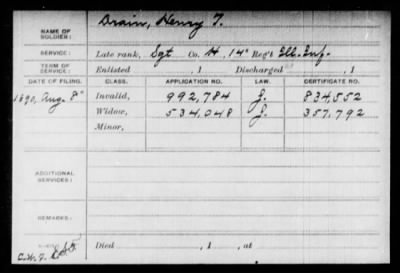 NAME OF SOLDIER: Drain, Henry T.
SERVICE: Late rank, Sgt Co. H, 14" Reg't Ill. Inf.
TERM OF SERVICE: Enlisted , 1 Discharged , 1
DATE OF FILING. CLASS. APPLICATION NO. LAW. CERTIFICATE NO.
1890, Aug. 8" Invalid, 992,784 J. 834,552
Widow, 534,048 J. 357,792
Minor,
ADDITIONAL SERVICES:
REMARKS:
Died , 1 , at